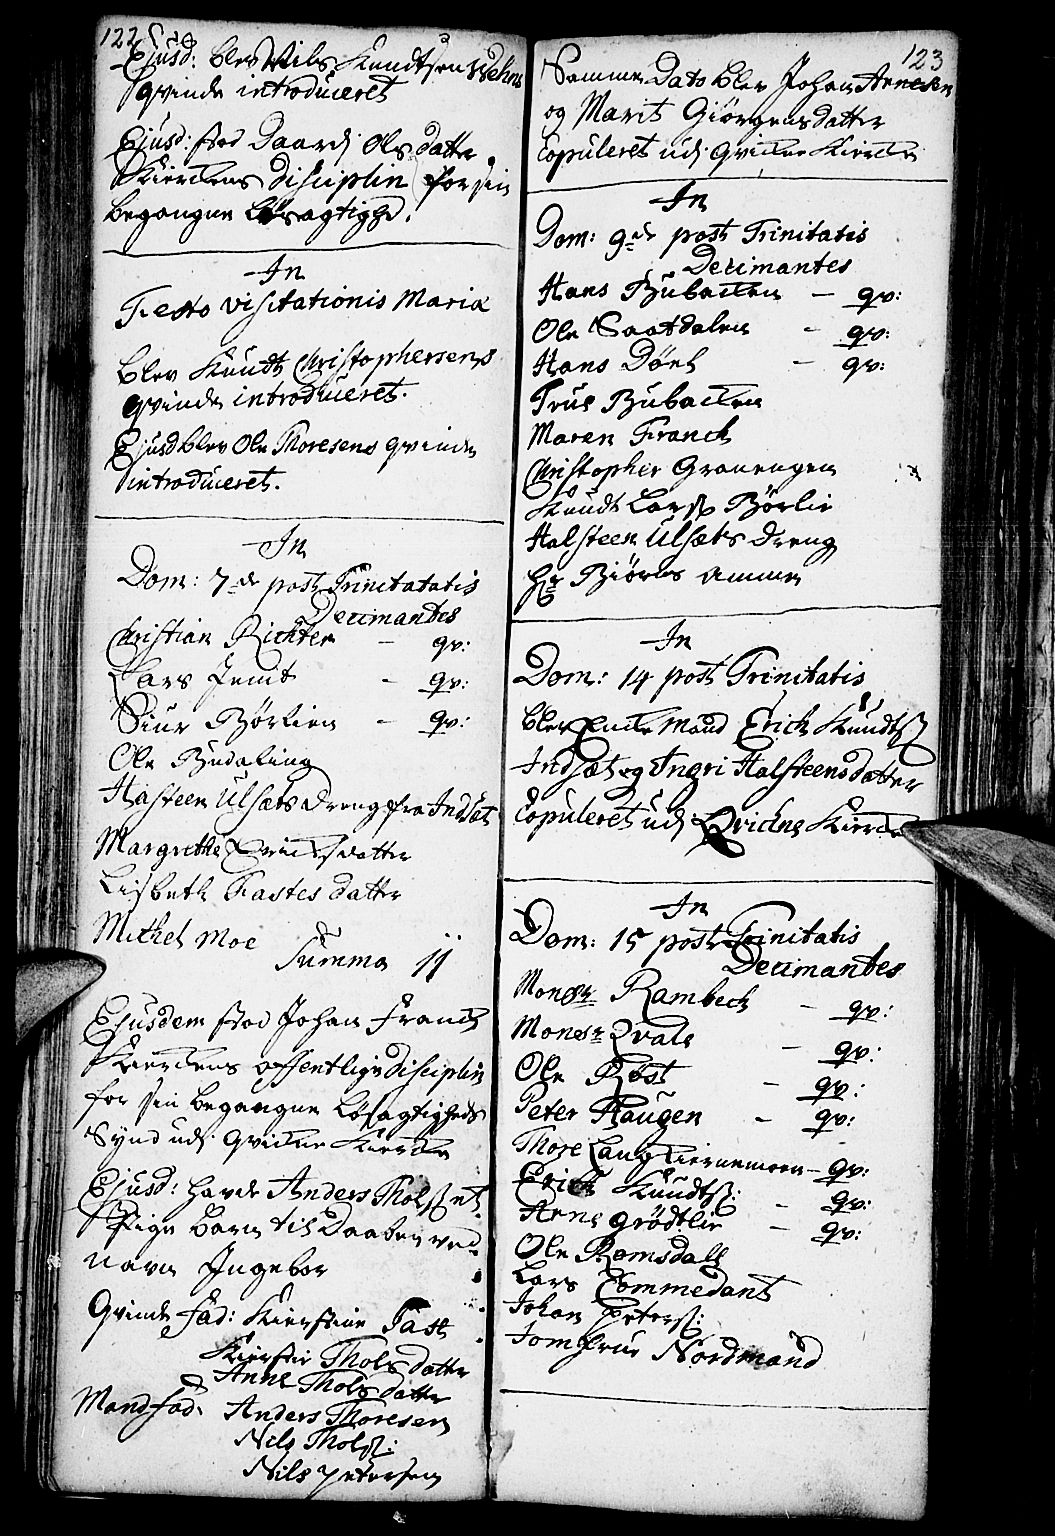 122
Ejusd: blev Nils Knudtsen
qvinde introduceret
Ejusd: stod Baardj Olsdatter
Kierckens disciplin for sin
begangne løsagtighd.
In
Festo Visitationis Mariæ
blev Knudt Christophersens
qvinde introduceret.
Ejusd blev Ole Thoresens qvinde
introduceret.
In
Dom: 7de post Trinitatatis
Decimantes
Christian Richter - qv:
Lars Jemt - qv:
Siur Børlien - qv:
Ole Budaling
Hasteen Ulsæts dreng fra Indset
Margrethe Ericksdatter
Lisbeth Fastes datter
Mickel Moe
Summa 11
Ejusdem stod Johan Franck
Kierckens offentlige disciplin
for sin begangne Løsagtigheds
Synd udj Qvickne Kiercke
Ejusd: hafde Anders Thols: et
Pige Barn til Daaben ved
navn Ingebor
Qvinde fad: Kierstine Fast
Kierstie Thols datter
Anne Thols datter
Mandfad: Anders Thoresen
Nils Thols:
Nils Petersen
123
Samme Dato blev Johan Arnesen
og Marit Giörgensdatter
Copuleret udj Qvickne Kiercke
In
Dom: 9de post Trinitatis
Decimantes
Hans Bubacken - qv:
Ole Saatdalen - qv:
Hans Döel - qv:
Trul Bubacken
Maren Franck
Christopher Granengen
Knudt Lars: Börlie
Halsteen Ulsæts dreng
Hr Biörns Amme
In
Dom: 14 post Trinitatis
blev Encke Mand Erick Knudts:
Indsæt og Ingri Halsteensdatter
Copuleret udj Qvickne Kiercke
In
Dom: 15 post Trinitatis
Decimantes
Monsr Rambeck - qv:
Monsr Qvale - qv:
Ole Röst - qv:
Peter Haugen - qv:
Thore Langkiernemoen - qv:
Erick Knudts: - qv:
Arne grödtlie - qv:
Ole Romsdall
Lars Commedant
Johan Peters:
Jomfrue Nordmand